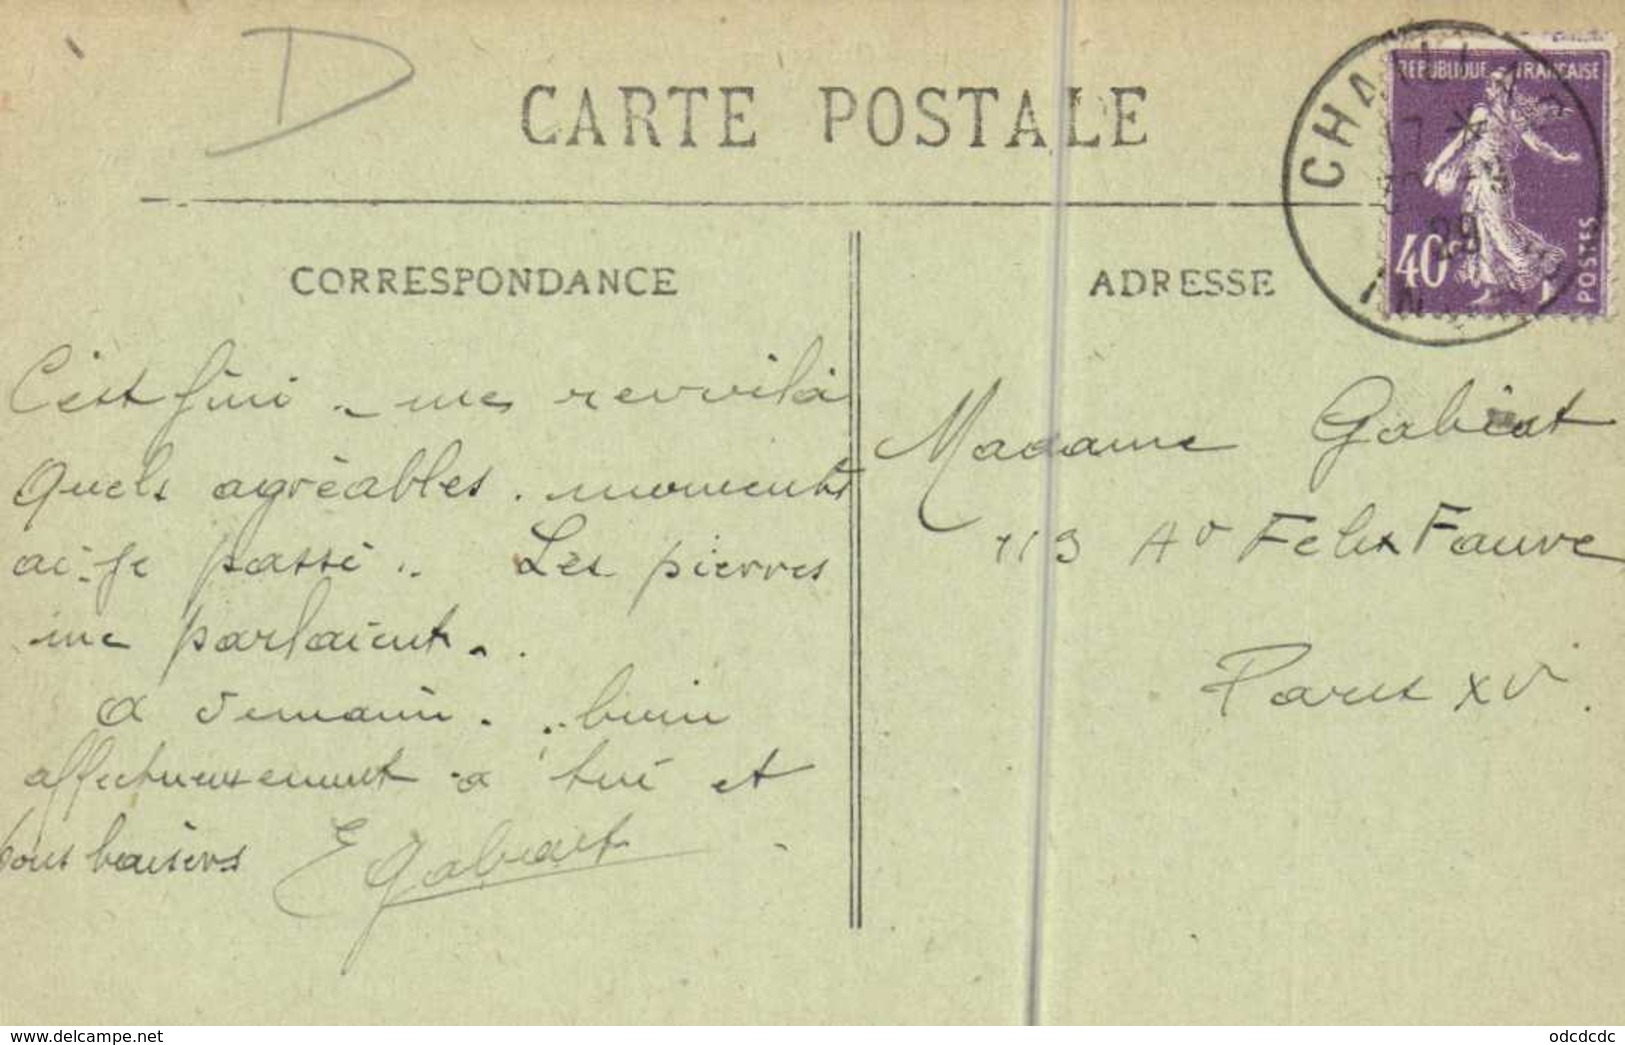 D
CARTE POSTALE
REPUBLIQUE FRANÇAISE
40c
POSTES
28
CORRESPONDANCE
ADRESSE
C'est fini - me revoilà
Quels agréables moments
ai-je passé.. Les pierres
me parlaient..
a demain. .. bien
affectueusement a toi et
bons baisers E Gabeart
Madame
113 Av Felix Faure
Paris XV.
www.delcampe.net
odcdcdc